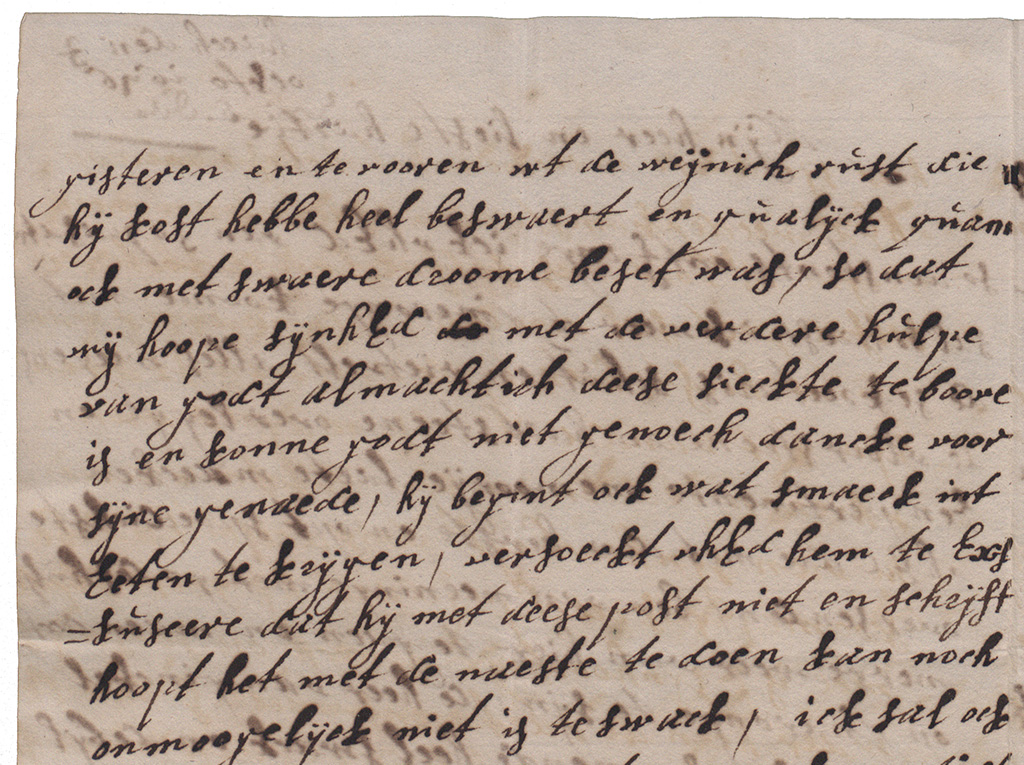 gisteren en te vooren wt de weijnich rust die
hij kost hebbe heel beswaert en qualijck quam
ock met swaere droome beset was, so dat
wij hoope sijnhEd do met de verdere hulpe
van godt almachtich deese sieckte te boove
is en konne godt niet genoech dancke voor
sijne genaede, hij begint ock wat smaeck int
Eeten te krijgen, versoeckt uhEd hem te Exs
=kuseere dat hij met deese post niet en schrijft
hoopt het met de naeste te doen kan noch
onmoogelijck niet is te swack, ick sal ock